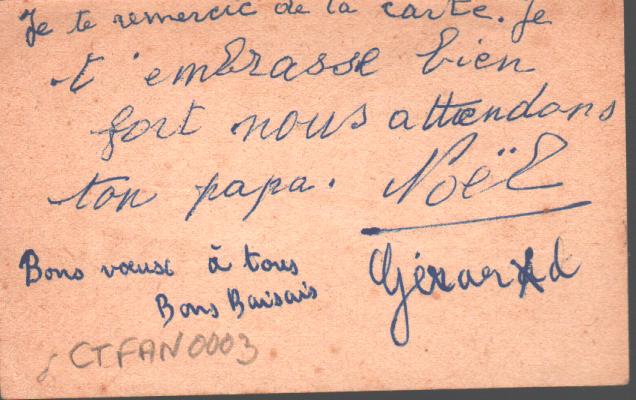 Je te remercie de la carte. Je
t'embrasse bien
fort nous attendons
ton papa. Noël
Gérard
Bons vœux à tous
Bons Baisais
CTFAN0003